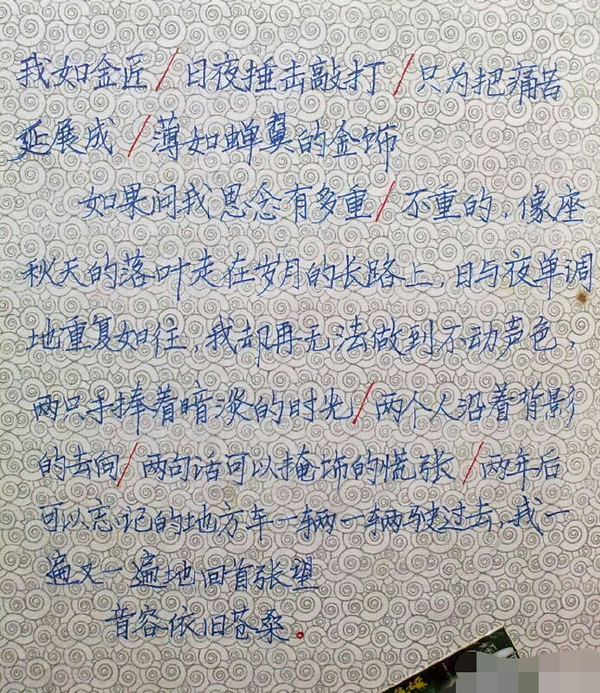 我如金匠/日夜捶击敲打/只为把痛苦
延展成/薄如蝉翼的金饰
如果问我思念有多重/不重的，像座
秋天的落叶走在岁月的长路上，日与夜单调
地重复如往，我却再无法做到不动声色，
两只手捧着暗淡的时光/两个人沿着背影
的去向/两句话可以掩饰的慌张/两年后
可以忘记的地方车一辆一辆驶过去，我一
遍又一遍地回首张望
音容依旧苍桑。